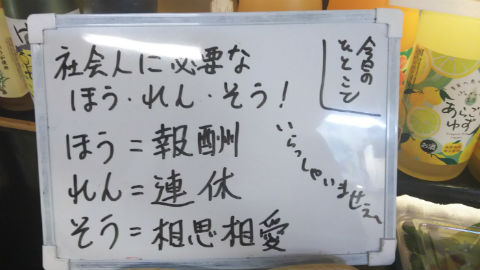 今日の
ひとこと
社会人に必要な
ほう・れん・そう！
ほう＝報酬
れん＝連休
そう＝相思相愛
いらっしゃいませぇ〜
あらごし
ゆず
お酒